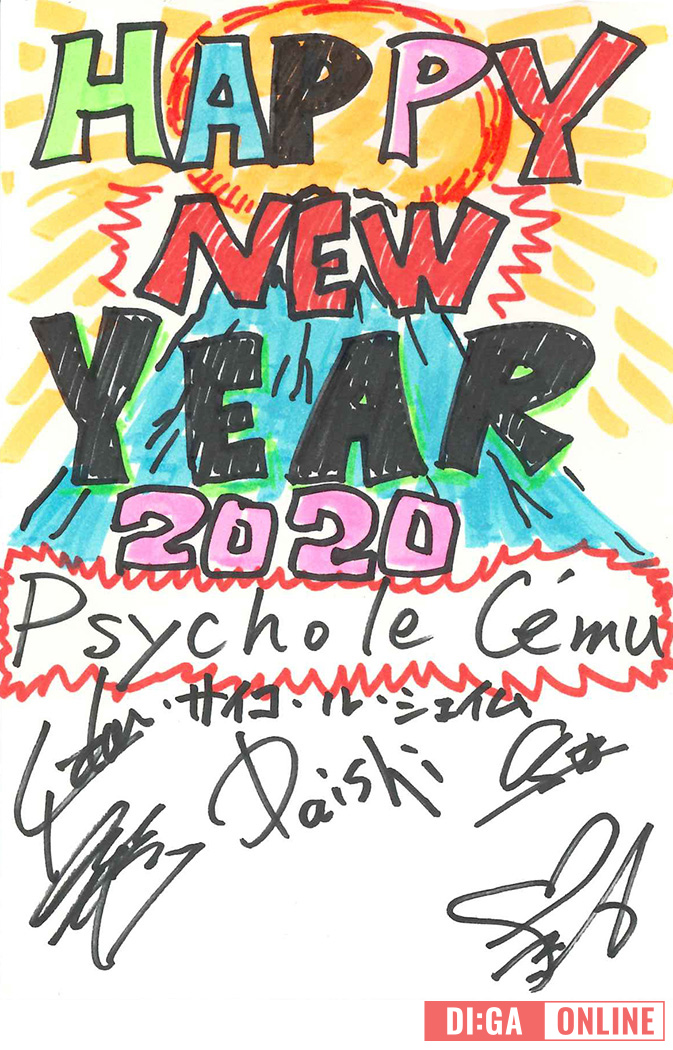 HAPPY
NEW
YEAR
2020
Psycho le Cému
サイコ・ル・シェイム
Daishi
DI:GA ONLINE